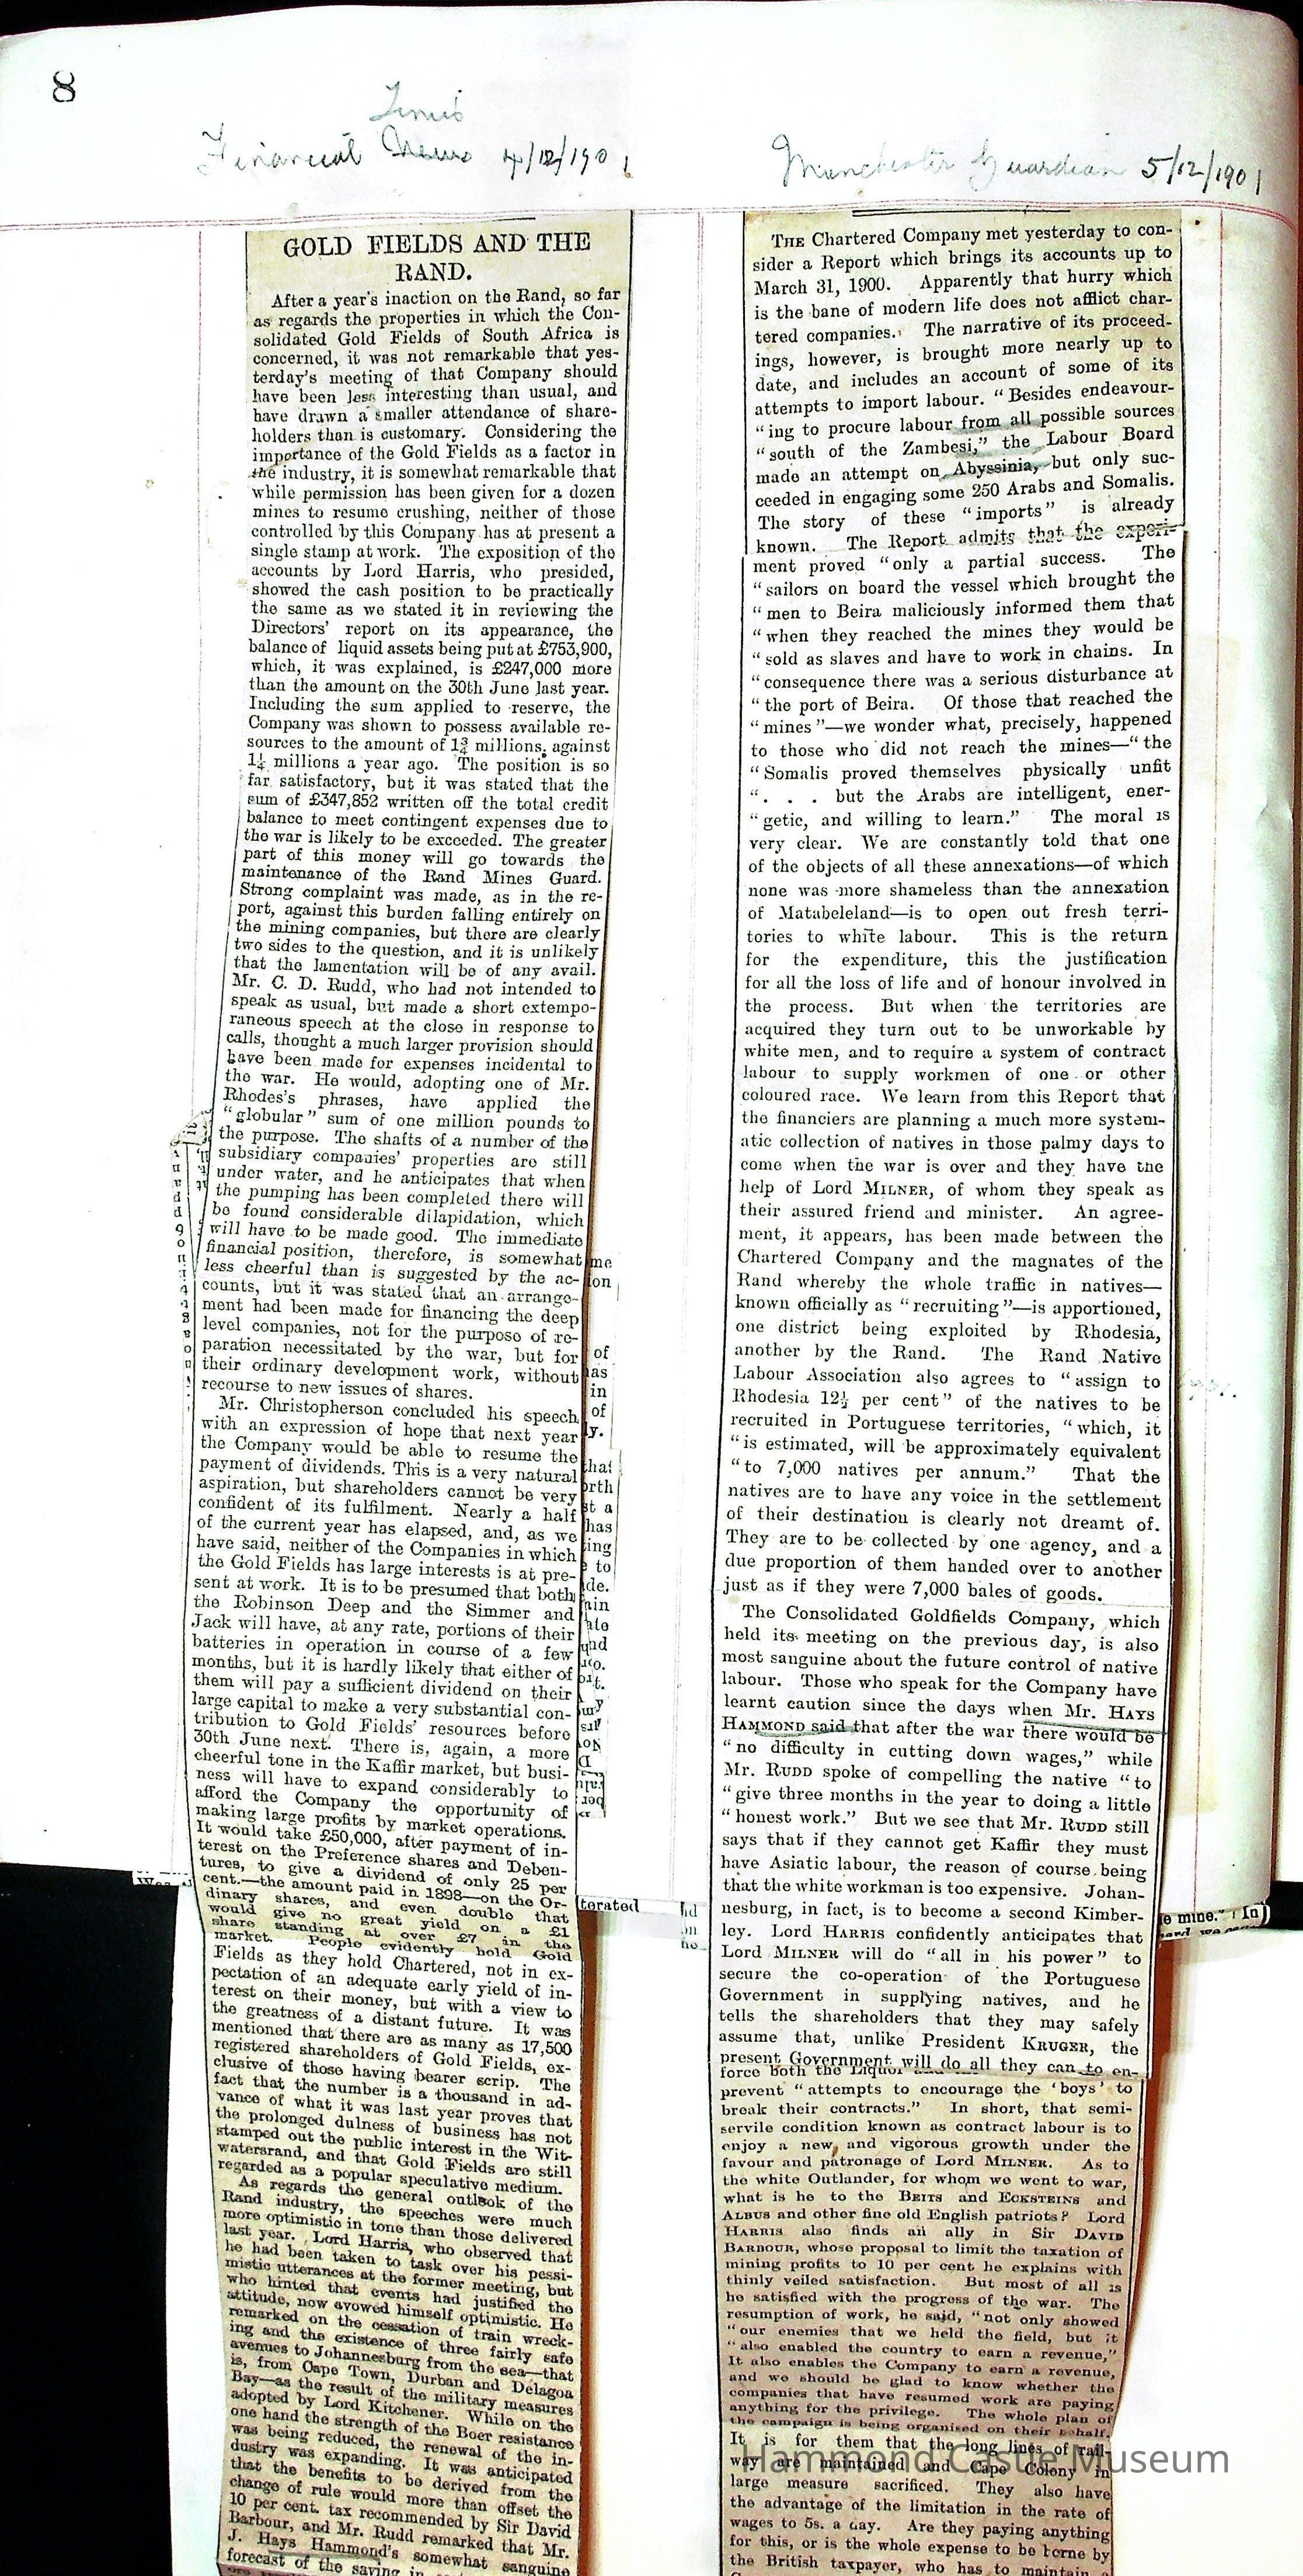 8
Times
Financial News 4/12/1901
Manchester Guardian 5/12/1901
GOLD FIELDS AND THE
RAND.
After a year's inaction on the Rand, so far
as regards the properties in which the Con-
solidated Gold Fields of South Africa is
concerned, it was not remarkable that yes-
terday's meeting of that Company should
have been less interesting than usual, and
have drawn a smaller attendance of share-
holders than is customary. Considering the
importance of the Gold Fields as a factor in
the industry, it is somewhat remarkable that
while permission has been given for a dozen
mines to resume crushing, neither of those
controlled by this Company has at present a
single stamp at work. The exposition of the
accounts by Lord Harris, who presided,
showed the cash position to be practically
the same as we stated it in reviewing the
Directors' report on its appearance, the
balance of liquid assets being put at £753,900,
which, it was explained, is £247,000 more
than the amount on the 30th June last year.
Including the sum applied to reserve, the
Company was shown to possess available re-
sources to the amount of 1¾ millions, against
1¼ millions a year ago. The position is so
far satisfactory, but it was stated that the
sum of £347,852 written off the total credit
balance to meet contingent expenses due to
the war is likely to be exceeded. The greater
part of this money will go towards the
maintenance of the Rand Mines Guard.
Strong complaint was made, as in the re-
port, against this burden falling entirely on
the mining companies, but there are clearly
two sides to the question, and it is unlikely
that the lamentation will be of any avail.
Mr. C. D. Rudd, who had not intended to
speak as usual, but made a short extempo-
raneous speech at the close in response to
calls, thought a much larger provision should
have been made for expenses incidental to
the war. He would, adopting one of Mr.
Rhodes's phrases, have applied the
"globular" sum of one million pounds to
the purpose. The shafts of a number of the
subsidiary companies' properties are still
under water, and he anticipates that when
the pumping has been completed there will
be found considerable dilapidation, which
will have to be made good. The immediate
financial position, therefore, is somewhat
less cheerful than is suggested by the ac-
counts, but it was stated that an arrange-
ment had been made for financing the deep
level companies, not for the purpose of re-
paration necessitated by the war, but for
their ordinary development work, without
recourse to new issues of shares.
Mr. Christopherson concluded his speech
with an expression of hope that next year
the Company would be able to resume the
payment of dividends. This is a very natural
aspiration, but shareholders cannot be very
confident of its fulfilment. Nearly a half
of the current year has elapsed, and, as we
have said, neither of the Companies in which
the Gold Fields has large interests is at pre-
sent at work. It is to be presumed that both
the Robinson Deep and the Simmer and
Jack will have, at any rate, portions of their
batteries in operation in course of a few
months, but it is hardly likely that either of
them will pay a sufficient dividend on their
large capital to make a very substantial con-
tribution to Gold Fields' resources before
30th June next. There is, again, a more
cheerful tone in the Kaffir market, but busi-
ness will have to expand considerably to
afford the Company the opportunity of
making large profits by market operations.
It would take £50,000, after payment of in-
terest on the Preference shares and Deben-
tures, to give a dividend of only 25 per
cent.—the amount paid in 1898—on the Or-
dinary shares, and even double that
would give no great yield on a £1
share standing at over £7 in the
market. People evidently hold Gold
Fields as they hold Chartered, not in ex-
pectation of an adequate early yield of in-
terest on their money, but with a view to
the greatness of a distant future. It was
mentioned that there are as many as 17,500
registered shareholders of Gold Fields, ex-
clusive of those having bearer scrip. The
fact that the number is a thousand in ad-
vance of what it was last year proves that
the prolonged dulness of business has not
stamped out the public interest in the Wit-
watersrand, and that Gold Fields are still
regarded as a popular speculative medium.
As regards the general outlook of the
Rand industry, the speeches were much
more optimistic in tone than those delivered
last year. Lord Harris, who observed that
he had been taken to task over his pessi-
mistic utterances at the former meeting, but
who hinted that events had justified the
attitude, now avowed himself optimistic. He
remarked on the cessation of train wreck-
ing and the existence of three fairly safe
avenues to Johannesburg from the sea—that
is, from Cape Town, Durban and Delagoa
Bay—as the result of the military measures
adopted by Lord Kitchener. While on the
one hand the strength of the Boer resistance
was being reduced, the renewal of the in-
dustry was expanding. It was anticipated
that the benefits to be derived from the
change of rule would more than offset the
10 per cent. tax recommended by Sir David
Barbour, and Mr. Rudd remarked that Mr.
J. Hays Hammond's somewhat sanguine
forecast of the saving in
THE Chartered Company met yesterday to con-
sider a Report which brings its accounts up to
March 31, 1900. Apparently that hurry which
is the bane of modern life does not afflict char-
tered companies. The narrative of its proceed-
ings, however, is brought more nearly up to
date, and includes an account of some of its
attempts to import labour. "Besides endeavour-
"ing to procure labour from all possible sources
"south of the Zambesi," the Labour Board
made an attempt on Abyssinia, but only suc-
ceeded in engaging some 250 Arabs and Somalis.
The story of these "imports" is already
known. The Report admits that the experi-
ment proved "only a partial success. The
"sailors on board the vessel which brought the
"men to Beira maliciously informed them that
"when they reached the mines they would be
"sold as slaves and have to work in chains. In
"consequence there was a serious disturbance at
"the port of Beira. Of those that reached the
"mines"—we wonder what, precisely, happened
to those who did not reach the mines—"the
"Somalis proved themselves physically unfit
". . . but the Arabs are intelligent, ener-
"getic, and willing to learn." The moral is
very clear. We are constantly told that one
of the objects of all these annexations—of which
none was more shameless than the annexation
of Matabeleland—is to open out fresh terri-
tories to white labour. This is the return
for the expenditure, this the justification
for all the loss of life and of honour involved in
the process. But when the territories are
acquired they turn out to be unworkable by
white men, and to require a system of contract
labour to supply workmen of one or other
coloured race. We learn from this Report that
the financiers are planning a much more system-
atic collection of natives in those palmy days to
come when the war is over and they have the
help of Lord MILNER, of whom they speak as
their assured friend and minister. An agree-
ment, it appears, has been made between the
Chartered Company and the magnates of the
Rand whereby the whole traffic in natives—
known officially as "recruiting"—is apportioned,
one district being exploited by Rhodesia,
another by the Rand. The Rand Native
Labour Association also agrees to "assign to
Rhodesia 12½ per cent" of the natives to be
recruited in Portuguese territories, "which, it
"is estimated, will be approximately equivalent
"to 7,000 natives per annum." That the
natives are to have any voice in the settlement
of their destination is clearly not dreamt of.
They are to be collected by one agency, and a
due proportion of them handed over to another
just as if they were 7,000 bales of goods.
The Consolidated Goldfields Company, which
held its meeting on the previous day, is also
most sanguine about the future control of native
labour. Those who speak for the Company have
learnt caution since the days when Mr. HAYS
HAMMOND said that after the war there would be
"no difficulty in cutting down wages," while
Mr. RUDD spoke of compelling the native "to
"give three months in the year to doing a little
"honest work." But we see that Mr. RUDD still
says that if they cannot get Kaffir they must
have Asiatic labour, the reason of course being
that the white workman is too expensive. Johan-
nesburg, in fact, is to become a second Kimber-
ley. Lord HARRIS confidently anticipates that
Lord MILNER will do "all in his power" to
secure the co-operation of the Portuguese
Government in supplying natives, and he
tells the shareholders that they may safely
assume that, unlike President KRUGER, the
present Government will do all they can to en-
force both the Liquor
prevent "attempts to encourage the 'boys' to
break their contracts." In short, that semi-
servile condition known as contract labour is to
enjoy a new and vigorous growth under the
favour and patronage of Lord MILNER. As to
the white Outlander, for whom we went to war,
what is he to the BEITS and ECKSTEINS and
ALBUS and other fine old English patriots? Lord
HARRIS also finds an ally in Sir DAVID
BARBOUR, whose proposal to limit the taxation of
mining profits to 10 per cent he explains with
thinly veiled satisfaction. But most of all is
he satisfied with the progress of the war. The
resumption of work, he said, "not only showed
"our enemies that we held the field, but it
"also enabled the country to earn a revenue,"
It also enables the Company to earn a revenue,
and we should be glad to know whether the
companies that have resumed work are paying
anything for the privilege. The whole plan of
the campaign is being organised on their behalf.
It is for them that the long lines of rail-
way are maintained and Cape Colony in
large measure sacrificed. They also have
the advantage of the limitation in the rate of
wages to 5s. a day. Are they paying anything
for this, or is the whole expense to be borne by
the British taxpayer, who has to maintain a
terated
e mine." In
Hammond Castle Museum